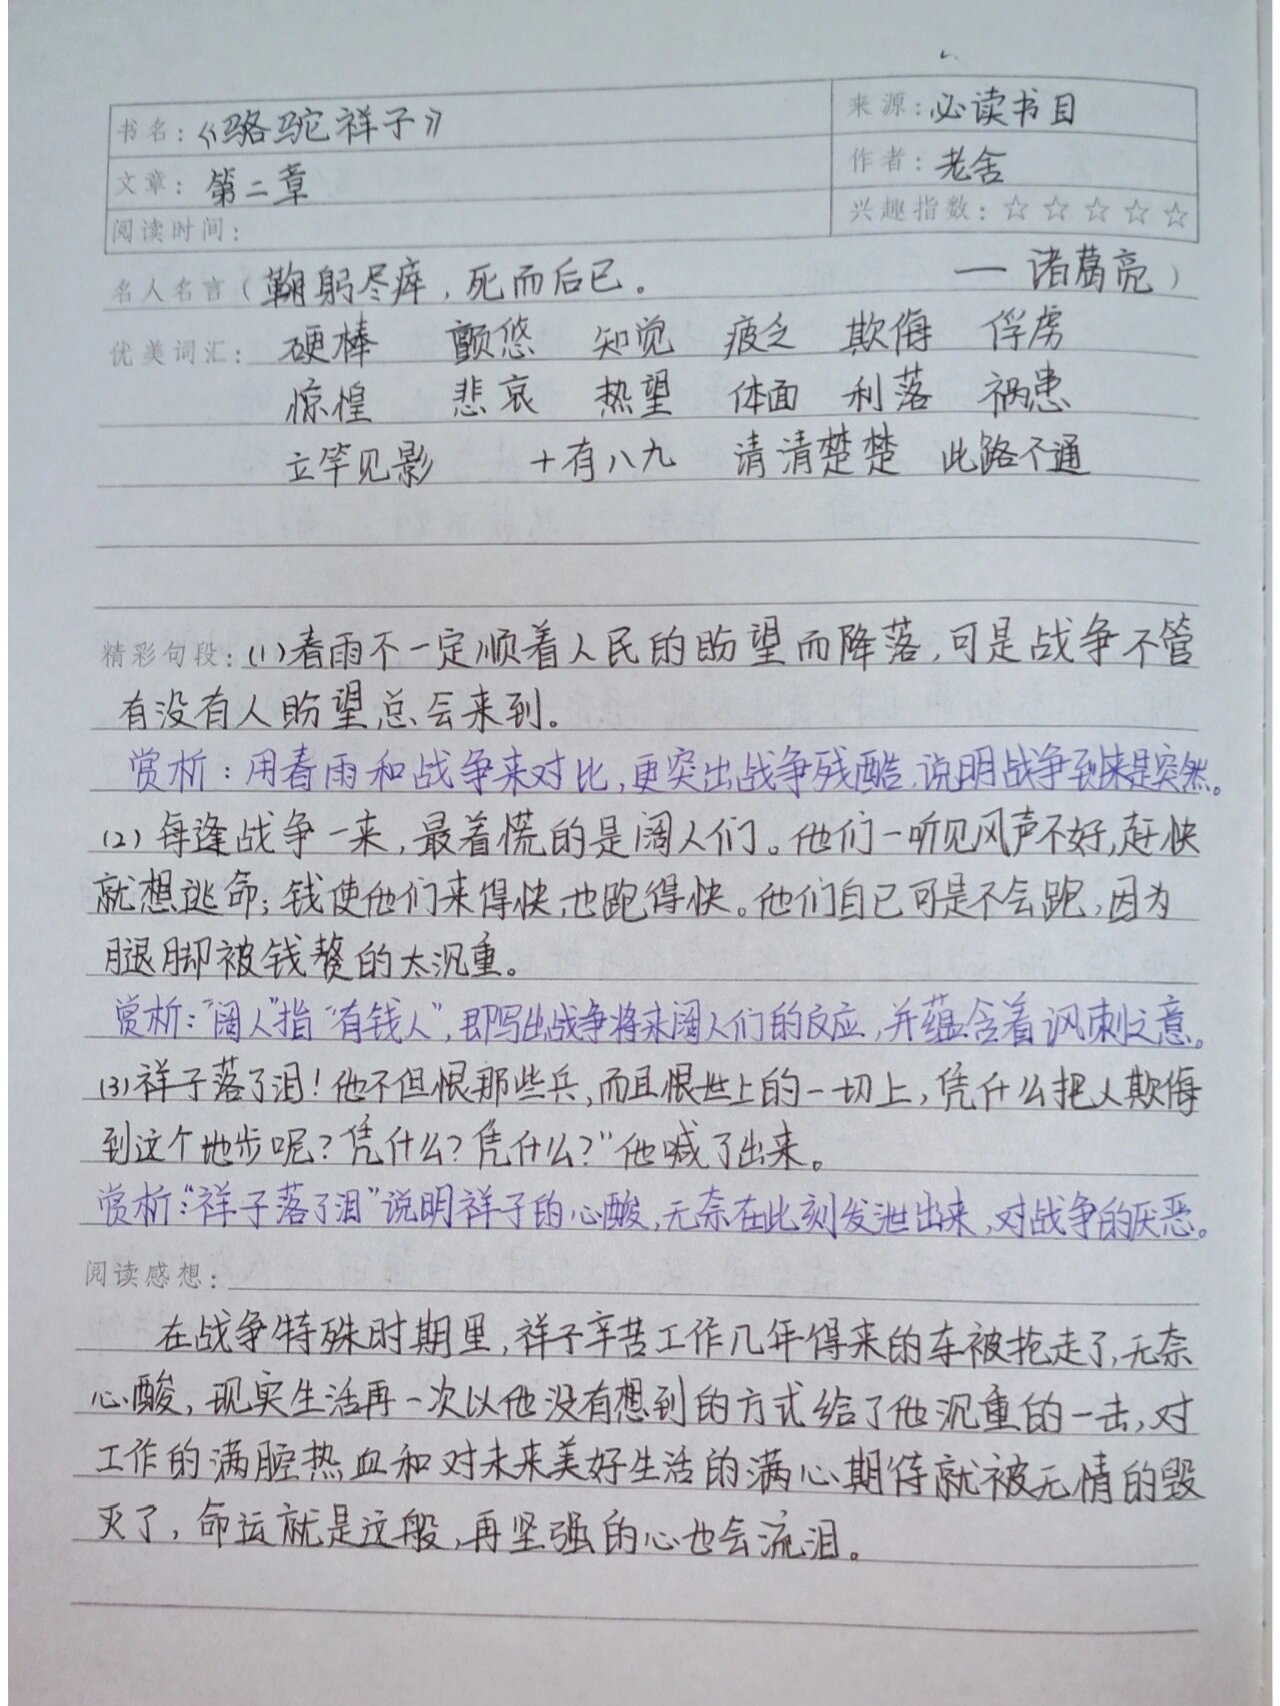 书名：《骆驼祥子》 来源：必读书目
文章：第二章 作者：老舍
阅读时间： 兴趣指数：☆☆☆☆☆
名人名言（鞠躬尽瘁，死而后已。 — 诸葛亮）
优美词汇： 硬棒 颤悠 知觉 疲乏 欺侮 俘虏
惊惶 悲哀 热望 体面 利落 祸患
立竿见影 十有八九 清清楚楚 此路不通
精彩句段：(1)春雨不一定顺着人民的盼望而降落，可是战争不管
有没有人盼望总会来到。
赏析：用春雨和战争来对比，更突出战争残酷，说明战争到来是突然。
(2)每逢战争一来，最着慌的是阔人们。他们一听见风声不好，赶快
就想逃命；钱使他们来得快，也跑得快。他们自己可是不会跑，因为
腿脚被钱赘的太沉重。
赏析：“阔人”指“有钱人”，即写出战争将来阔人们的反应，并蕴含着讽刺之意。
(3)祥子落了泪！他不但恨那些兵，而且恨世上的一切上，凭什么把人欺侮
到这个地步呢？凭什么？凭什么？”他喊了出来。
赏析：“祥子落了泪”说明祥子的心酸，无奈在此刻发泄出来，对战争的厌恶。
阅读感想：
在战争特殊时期里，祥子辛苦工作几年得来的车被抢走了，无奈
心酸，现实生活再一次以他没有想到的方式给了他沉重的一击，对
工作的满腔热血和对未来美好生活的满心期待就被无情的毁
灭了，命运就是这般，再坚强的心也会流泪。